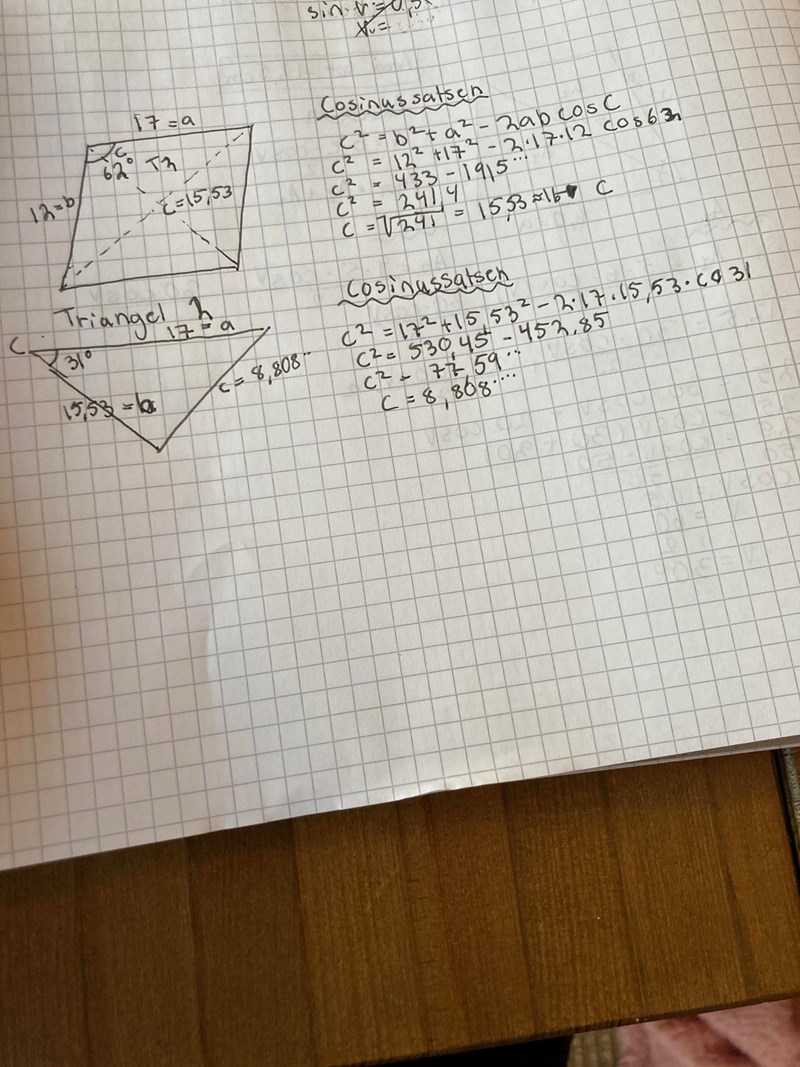 sin v = 0,5
v =
17 = a
C
62°
12 = b
C = 15,53
Cosinussatsen
c² = b² + a² - 2ab cos C
c² = 12² + 17² - 2·17·12 cos 62
c² = 433 - 191,5...
c² = 241,4
c = √241 = 15,53 ≈ 16 C
Triangel 2
17 = a
C
31°
15,53 = b
c = 8,808...
Cosinussatsen
c² = 17² + 15,53² - 2·17·15,53·cos 31
c² = 530,45 - 452,85
c² = 77,59...
c = 8,808....